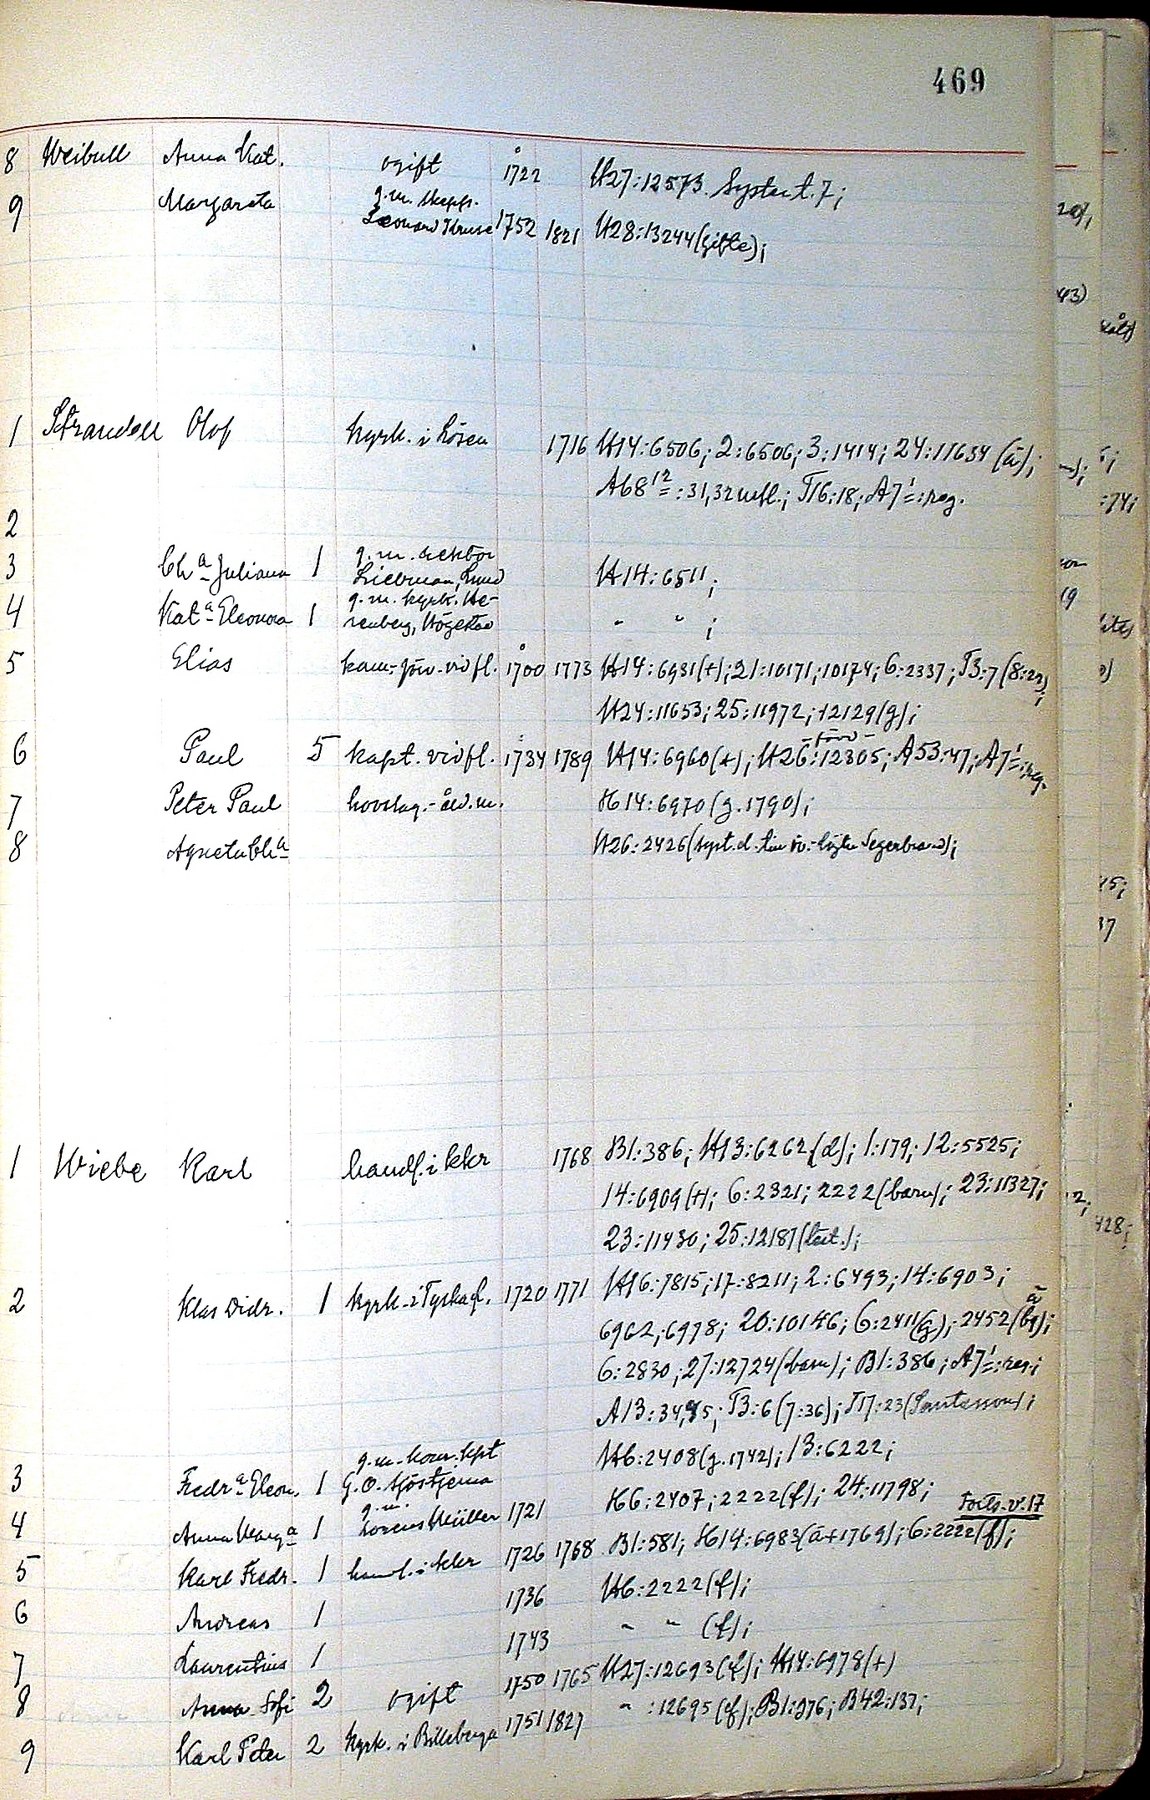 469
8 Weibull Anna Kat. ogift 1722 H27:12573. Syster t. 7;
9 Margareta g.m. skepp.
Leonard Kruse 1752 1821 H28:13244 (gifte);
1 Strandell Olof kyrk. i Lösen 1716 H14:6506; 2:6506; 3:1414; 24:11634 (ä);
A68 12:31,32 utfl.; T16:18; A71:reg.
2
3 Cha Juliana 1 g.m. rektor
Liebman, Lund H14:6511;
4 Kata Eleonora 1 g.m. kyrk. We-
renberg, Högestad " " ;
5 Elias kam.-förv. vid fl. 1700 1773 H14:6931(+); 21:10171; 10174; 6:2337; T3:7 (8:22);
H24:11653; 25:11972; 12129(g);
6 Paul 5 kapt. vid fl. 1734 1789 H14:6960(+); H26:12305; A53:47; A71:reg.
7 Peter Paul hovslag.-åld.m. H14:6970 (g. 1790);
8 Agneta Cha H26:2426 (syst.d. till Segerbrand);
1 Wiebe Karl handl. i kkr 1768 B1:386; H13:6262 (d); 1:179; 12:5525;
14:6909 (+); 6:2321; 2222 (barn); 23:11327;
23:11430; 25:12187 (test.);
2 Klas Didr. 1 kyrk. i Tyska f. 1720 1771 H16:7815; 17:8211; 2:6493; 14:6903;
6962; 6978; 20:10146; 6:2411 (g); 2452 (bg);
6:2830; 27:12724 (barn); B1:386; A71:reg.;
A13:34,35; T3:6 (7:36); T17:23 (Santesson);
H6:2408 (g. 1742); 13:6222;
3 Fredra Eleon. 1 g.m. kom.kpt
G.O. Sjöstjerna H6:2407; 2222 (f); 24:11798;
4 Anna Marga 1 g.m.
Lorens Müller 1721 Forts. v. 17
5 Karl Fredr. 1 handl. i kkr 1726 1768 B1:581; H14:6983 (ä+1769); 6:2222 (f);
6 Andreas 1 1736 H6:2222 (f);
7 Laurentius 1 1743 " " (f);
8 Anna Sofi 2 ogift 1750 1765 H27:12693 (f); H14:6978 (+)
9 Karl Peter 2 kyrk. i Billeberga 1751 1827 " :12695 (f); B1:276; B42:137;